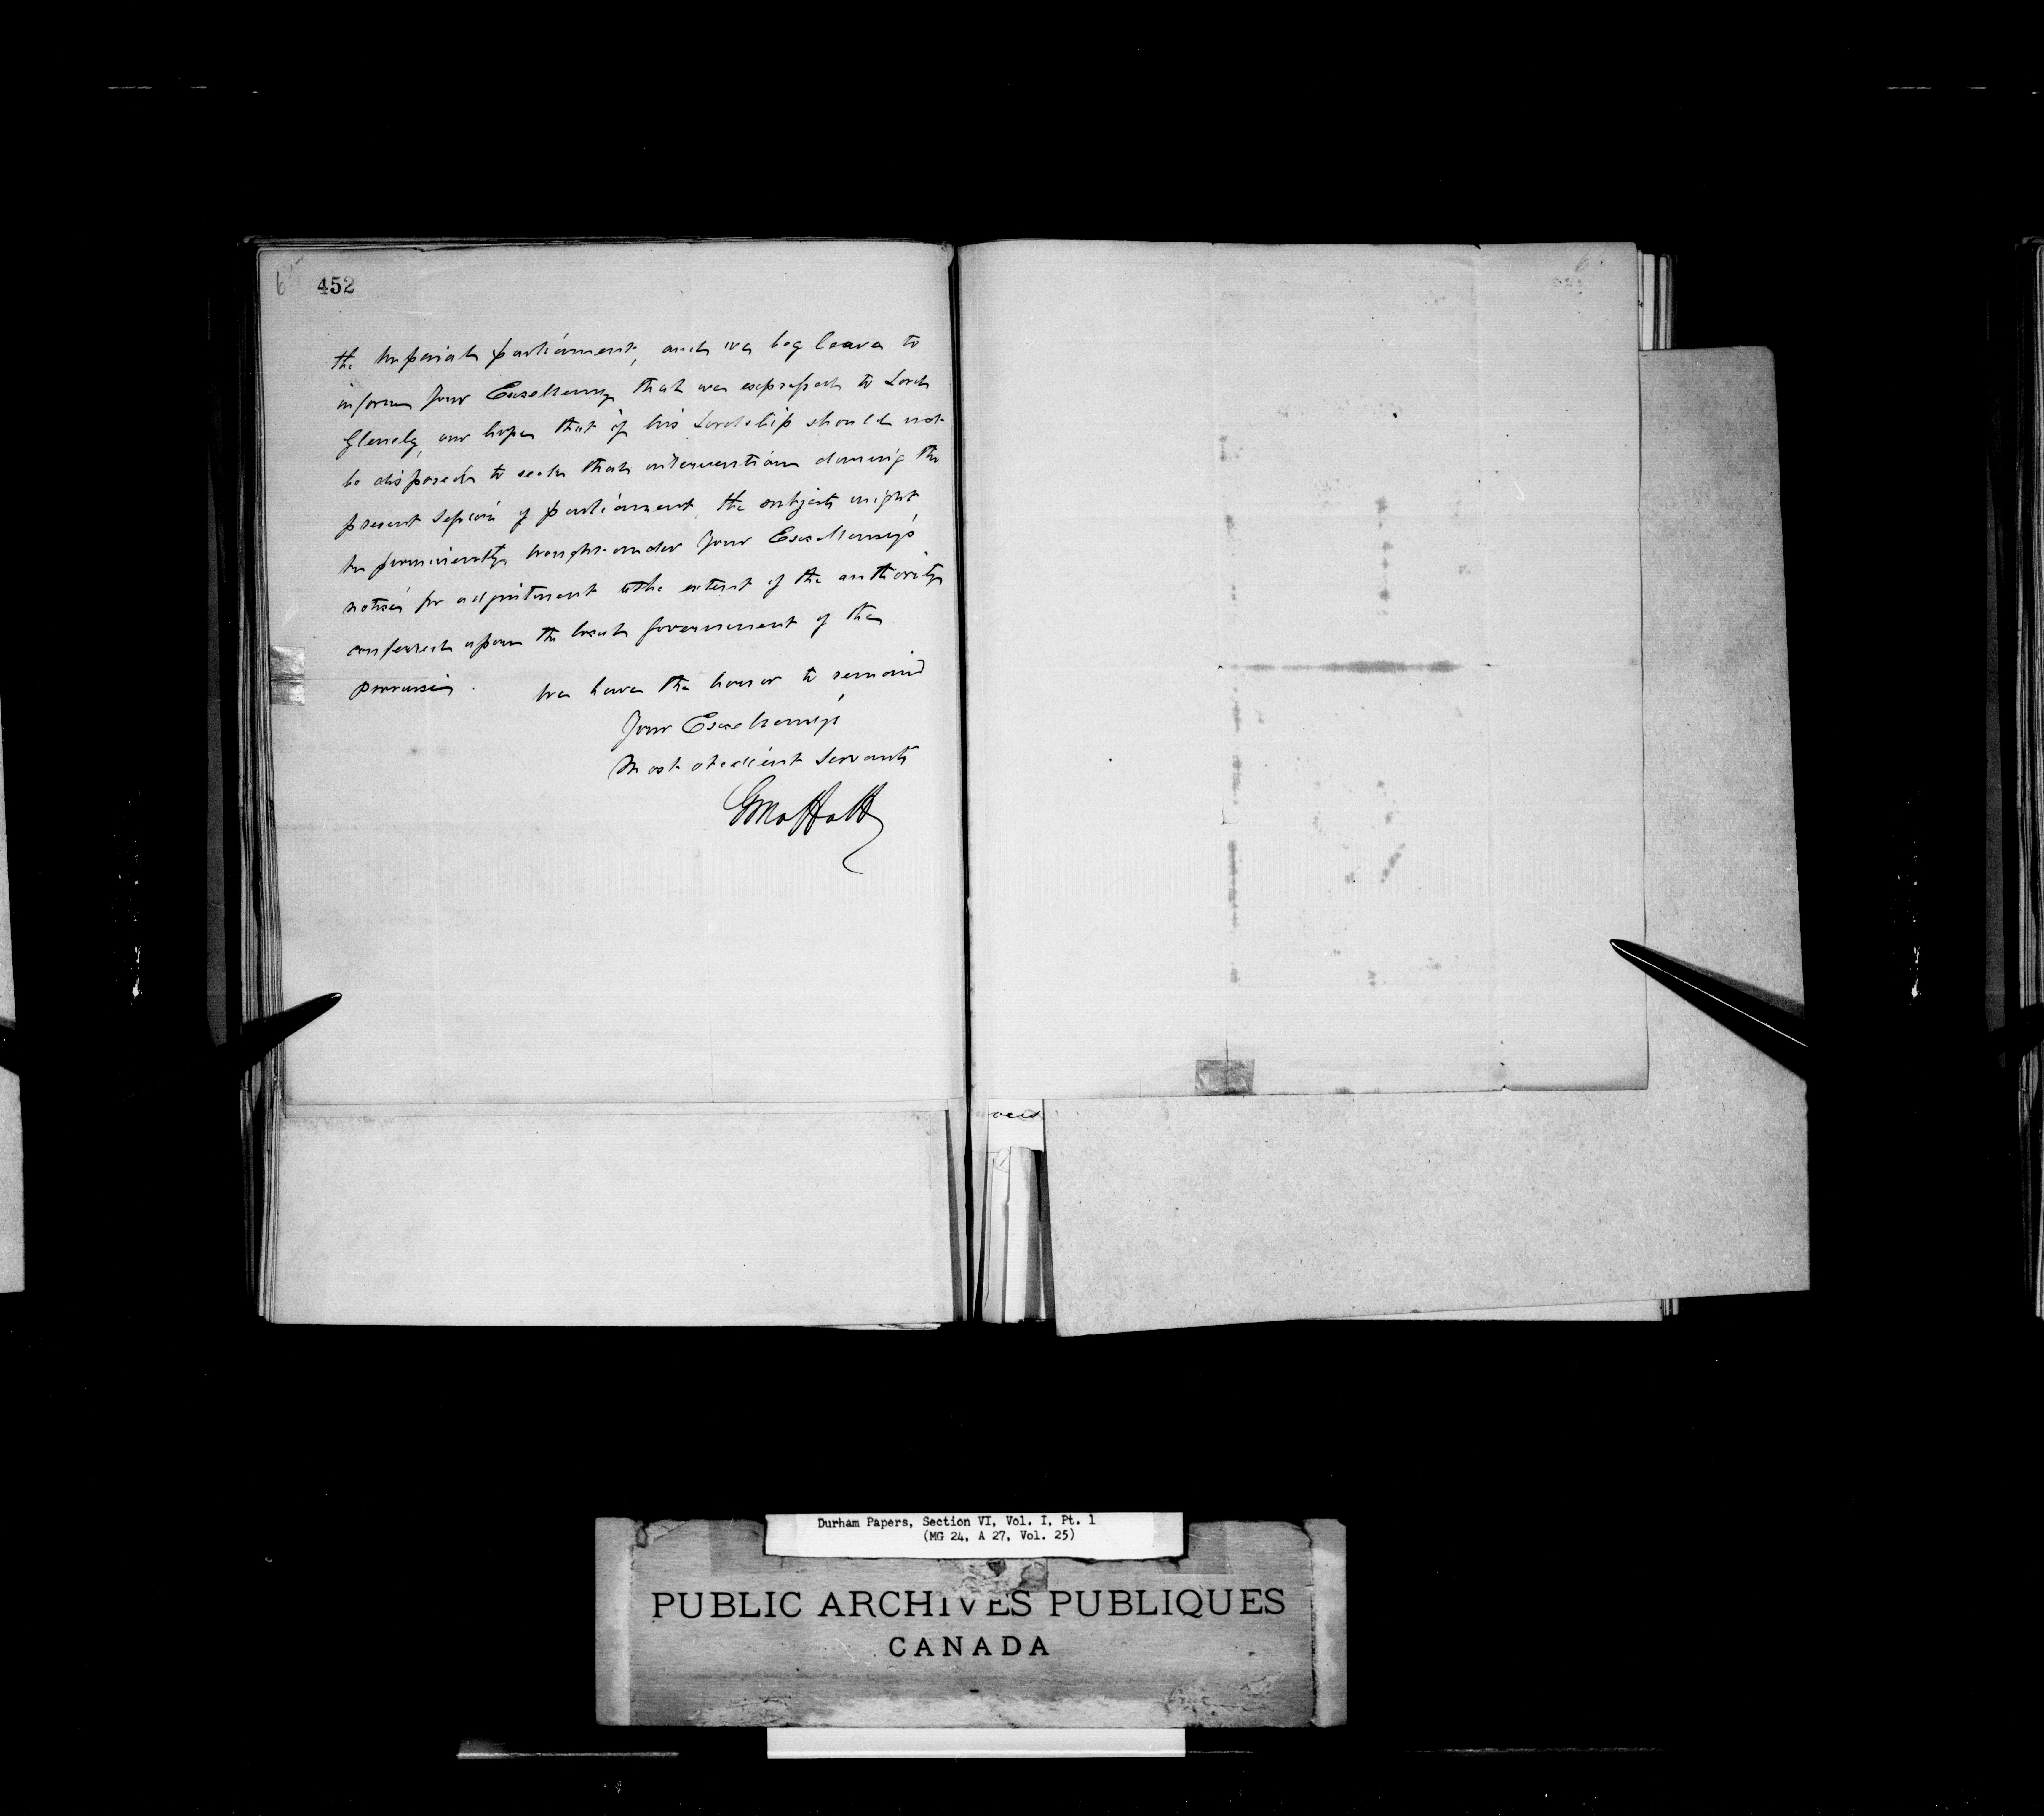 6
452
the Imperial parliament, and we beg leave to
inform Your Excellency that we expressed to Lord
Glenelg, our hope that if his Lordship should not
be disposed to seek that intervention during the
present Session of parliament, the subject might
be brought under Your Excellency's
notice for adjustment to the extent of the authority
conferred upon the local Government of the
province.
We have the honor to remain
Your Excellency's
Most obedient Servants
GMoffatt
Durham Papers, Section VI, Vol. I, Pt. 1
(MG 24, A 27, Vol. 25)
PUBLIC ARCHIVES PUBLIQUES
CANADA